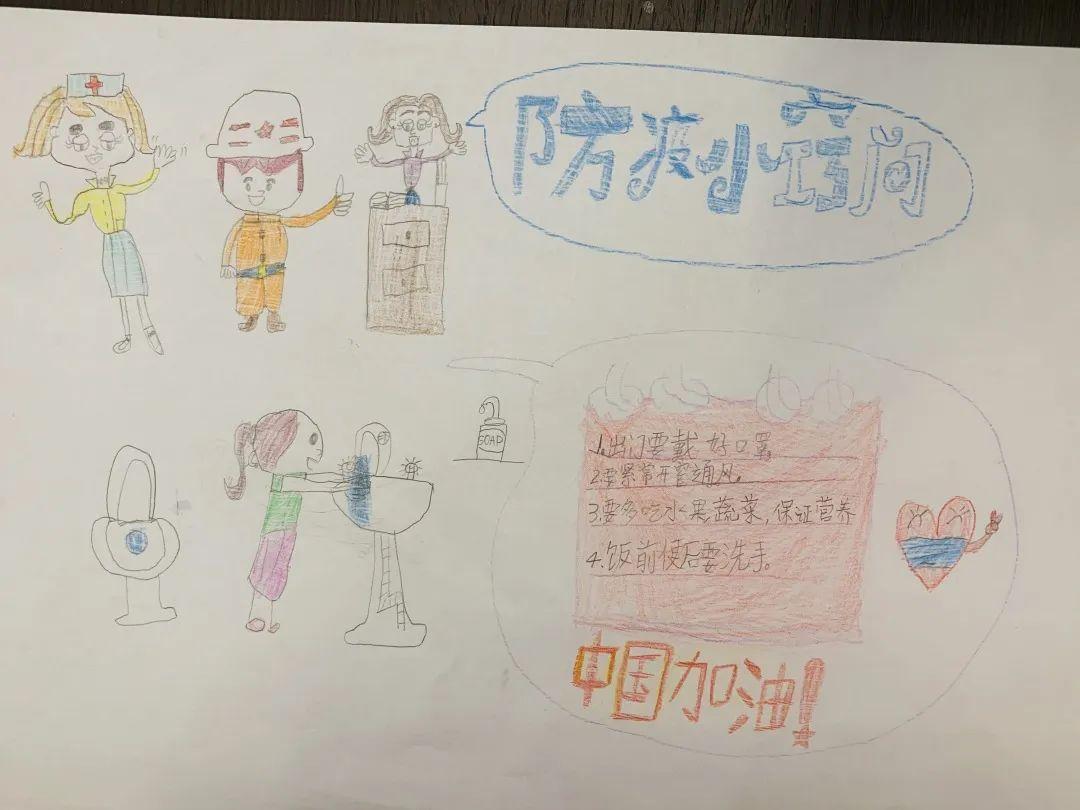 防疫小窍门
SOAP
1.出门要戴好口罩。
2.要紧常开窗通风。
3.要多吃水果,蔬菜,保证营养
4.饭前便后要洗手。
中国加油!